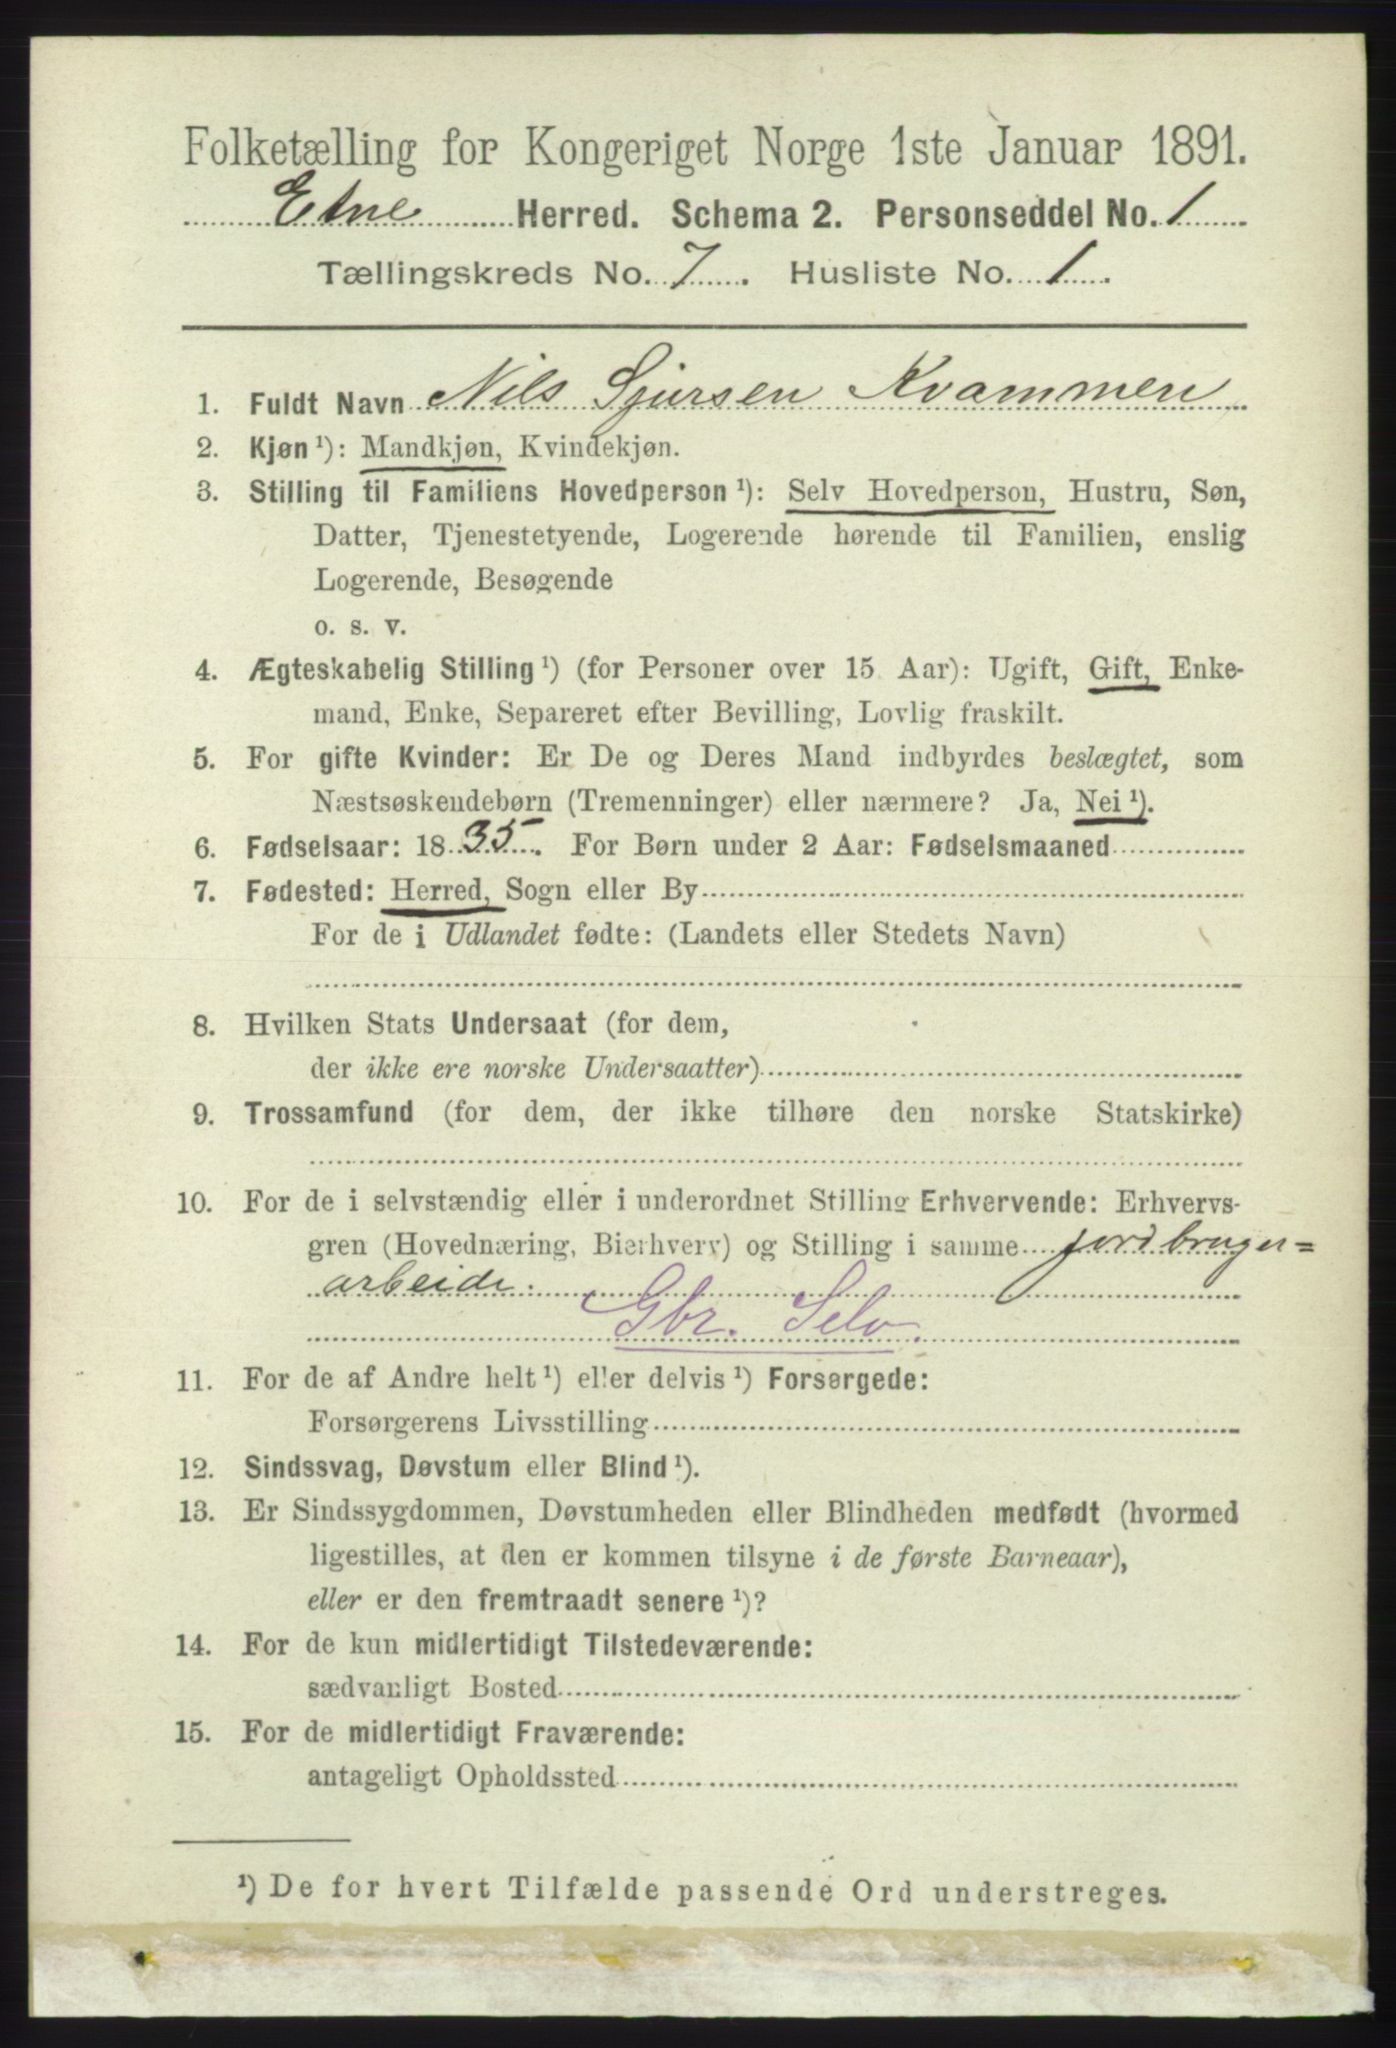 Folketælling for Kongeriget Norge 1ste Januar 1891.
Etne Herred. Schema 2. Personseddel No. 1
Tællingskreds No. 7. Husliste No. 1.
1. Fuldt Navn Nils Sjursen Kvammen
2. Kjøn ¹): Mandkjøn, Kvindekjøn.
3. Stilling til Familiens Hovedperson ¹): Selv Hovedperson, Hustru, Søn,
Datter, Tjenestetyende, Logerende hørende til Familien, enslig
Logerende, Besøgende
o. s. v.
4. Ægteskabelig Stilling ¹) (for Personer over 15 Aar): Ugift, Gift, Enke-
mand, Enke, Separeret efter Bevilling, Lovlig fraskilt.
5. For gifte Kvinder: Er De og Deres Mand indbyrdes beslægtet, som
Næstsøskendebørn (Tremenninger) eller nærmere? Ja, Nei ¹).
6. Fødselsaar: 1835. For Børn under 2 Aar: Fødselsmaaned
7. Fødested: Herred, Sogn eller By
For de i Udlandet fødte: (Landets eller Stedets Navn)
8. Hvilken Stats Undersaat (for dem,
der ikke ere norske Undersaatter)
9. Trossamfund (for dem, der ikke tilhøre den norske Statskirke)
10. For de i selvstændig eller i underordnet Stilling Erhvervende: Erhvervs-
gren (Hovednæring, Bierhverv) og Stilling i samme jordbruger=
arbeide.
Gbr. Selv.
11. For de af Andre helt ¹) eller delvis ¹) Forsørgede:
Forsørgerens Livsstilling
12. Sindssvag, Døvstum eller Blind ¹).
13. Er Sindssygdommen, Døvstumheden eller Blindheden medfødt (hvormed
ligestilles, at den er kommen tilsyne i de første Barneaar),
eller er den fremtraadt senere ¹)?
14. For de kun midlertidigt Tilstedeværende:
sædvanligt Bosted
15. For de midlertidigt Fraværende:
antageligt Opholdssted
¹) De for hvert Tilfælde passende Ord understreges.